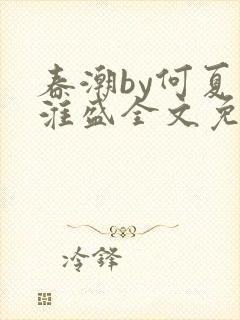 春潮by何夏
淮盛全文免
冷铎